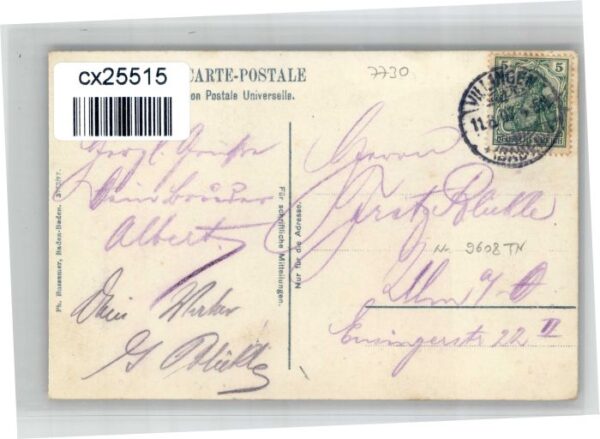 cx25515
CARTE-POSTALE
on Postale Universelle.
7730
5 5
VILLINGEN
11.8.
Herzl. Grüße
Dein Bruder
Albert.
Dein
Für schriftliche Mitteilungen.
Nur für die Adresse.
Herrn
Fritz
Nr. 9608 TN
Ulm a/D
Ensingerstr 22 II
Ph. Hussener, Baden-Baden.